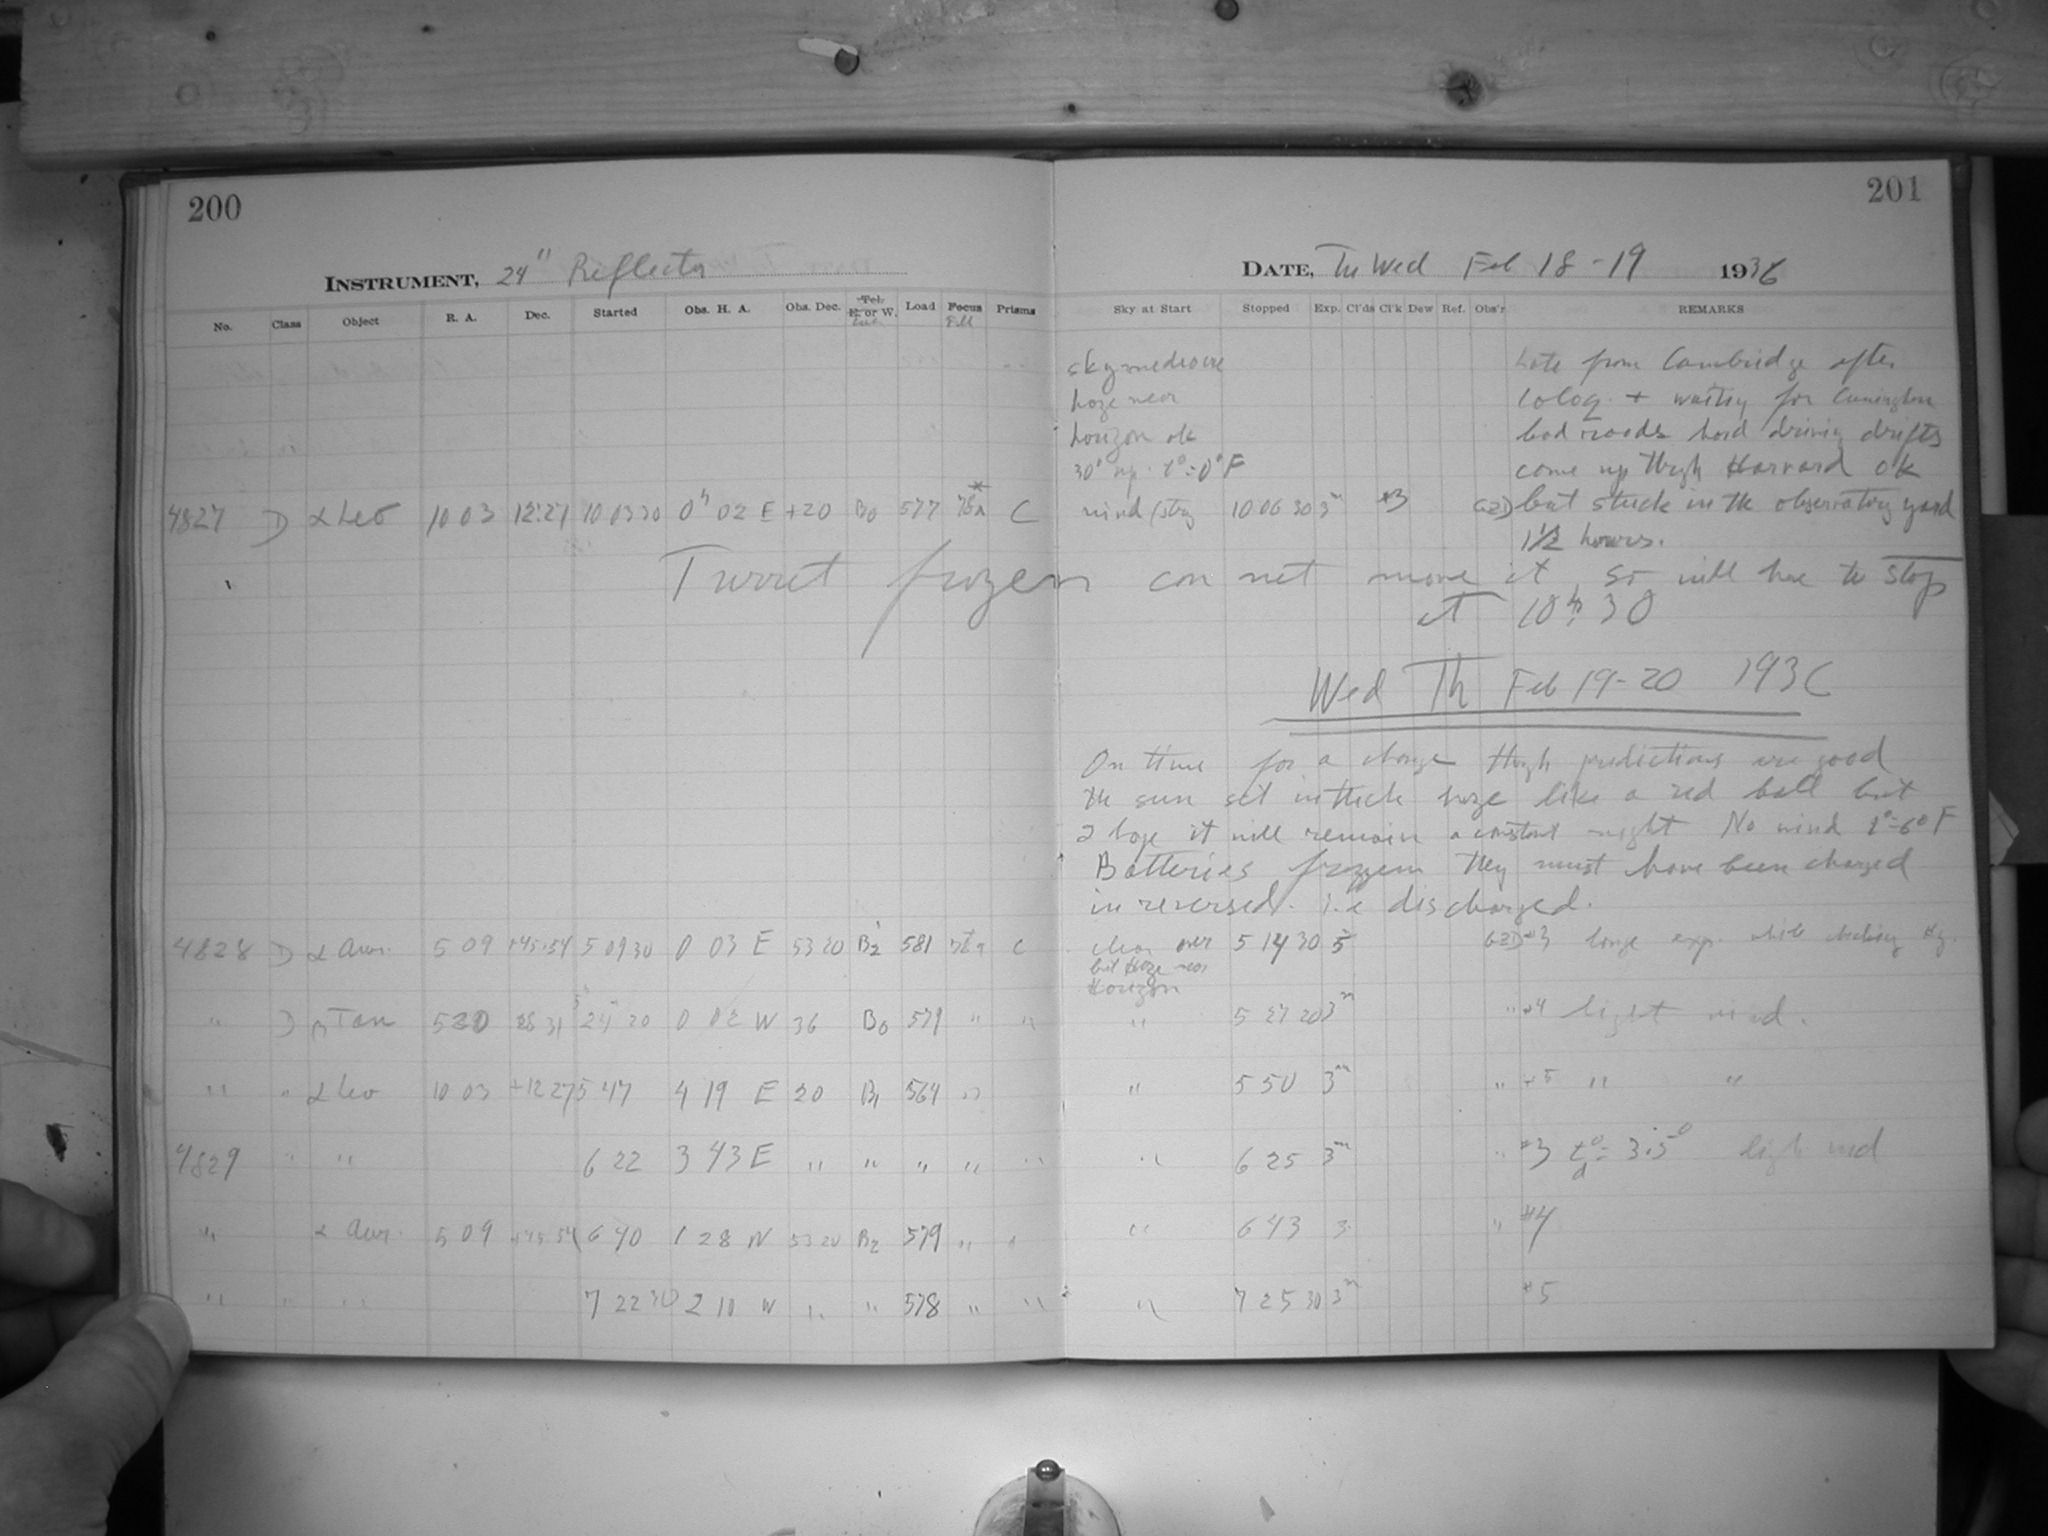 200
INSTRUMENT, 24" Reflector
No. Class Object R. A. Dec. Started Obs. H. A. Obs. Dec. Tel. E. or W. Load Focus Prisms
4827 D α Leo 10 03 12:27 10 03 30 0h 02 E +20 B0 577 C
Turret frozen can not move it, so will have to stop
at 10h 30
4828 D α Aur. 5 09 +45:54 5 09 30 0 03 E 53 20 B2 581 C
" β Tau 5 20 28 31 5 24 20 0 02 W 36 B0 579 " "
" " α Leo 10 03 +12 27 5 47 4 19 E 20 B1 564 "
4829 " " 6 22 3 43 E " " " " "
" α Aur. 5 09 +45 54 6 40 1 28 W 53 20 B2 579 " "
" " " 7 22 30 2 10 W " " 578 " "
201
DATE, Tu Wed Feb 18-19 1936
Sky at Start Stopped Exp. Cl'ds Cl'k Dew Ref. Obs'r REMARKS
sky mediocre
haze near
horizon ok
30° up. t°=0°F
wind strg 10 06 30 3m #3
Late from Cambridge after
coloq. + waiting for Cunningham
bad roads hard driving drifts
come up thrgh Harvard ok
but stuck in the observatory yard
1 1/2 hours.
Wed Th Feb 19-20 1936
On time for a change thogh predictions are good
the sun set in thick haze like a red ball but
I hope it will remain a constant night No wind t°=6° F
Batteries frozen they must have been charged
in reversed. i.e discharged.
clear over 5 14 30 5 #3 longe exp. while checking
but Haze near
Horizon
" 5 27 20 3m " #4 light wind.
" 5 50 3m " #5 " "
" 6 25 3m " #3 t°= 3.5° light wind
" 6 43 3 " #4
" 7 25 30 3m #5